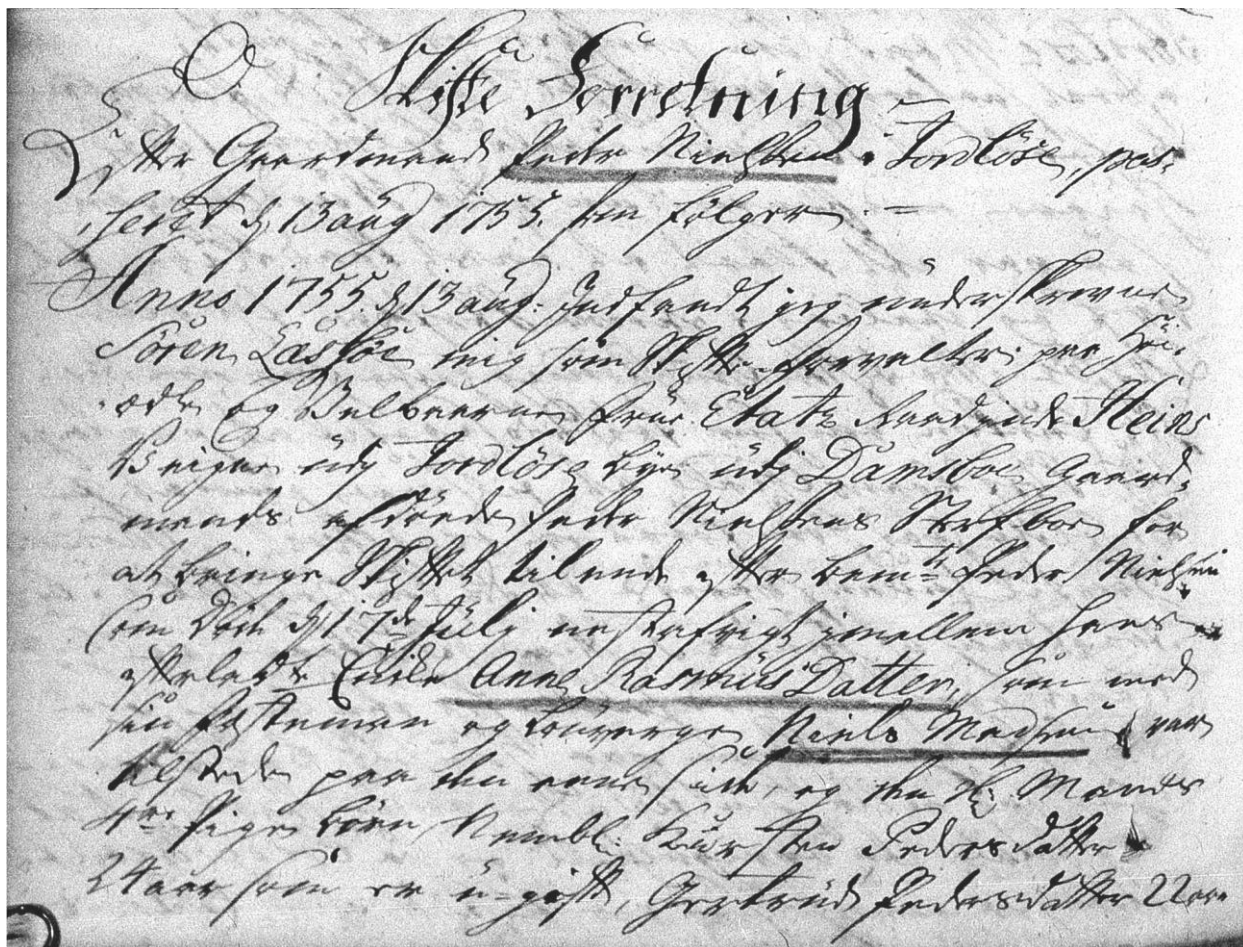 Skifte Forretning
Efter Gaardmand Peder Nielsen i Jordløse, pas-
seret d. 13 aug 1755. som følger
Anno 1755. d. 13 aug: Indfandt jeg underskrevne
Søren Lassøe mig som Skifte-forvalter paa Høi-
ædle og Velbaarne Frue Etatz Raadinde Heins
Veigne udj Jordløse bye udj Damsboe Gaard-
mands afdøde Peder Nielsens Sterfboe for
at bringe Skiftet til ende efter bemte Peder Nielsen
som døde d. 17de Julj nestafvigt imellem hans
efterladte Encke Anne Rasmus Datter, som med
sin festeman og Lauverge Niels Madsen var
tilstede paa den eene side, og den Sl: Mands
4re Pige børn, Nembl. Kirsten Peders datter
24 aar som er u-gift, Gertrud Pedersdatter 22 aar